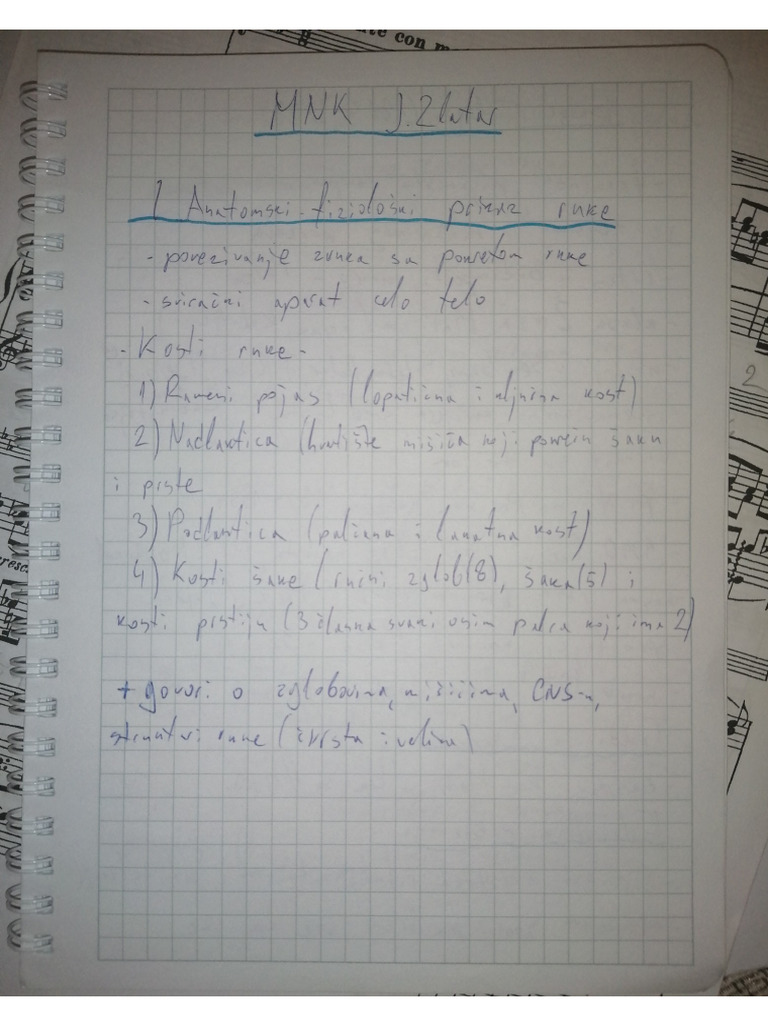 te con m
MNK J. Zlatar
1 Anatomski-fiziološki prikaz ruke
- povezivanje zvuka sa pokretom ruke
- svirački aparat celo telo
- Kosti ruke -
1) Rameni pojas (lopatična i ključna kost)
2) Nadlaktica (hvatište mišića koji pokreću šaku
i prste
3) Podlaktica (palčana i lakatna kost)
4) Kosti šake (ručni zglob(8), šaka(5) i
kosti prstiju (3 članka svaki osim palca koji ima 2)
+ govori o zglobovima, mišićima, CNS-u,
strukturi ruke (čvrsta i velika)
2